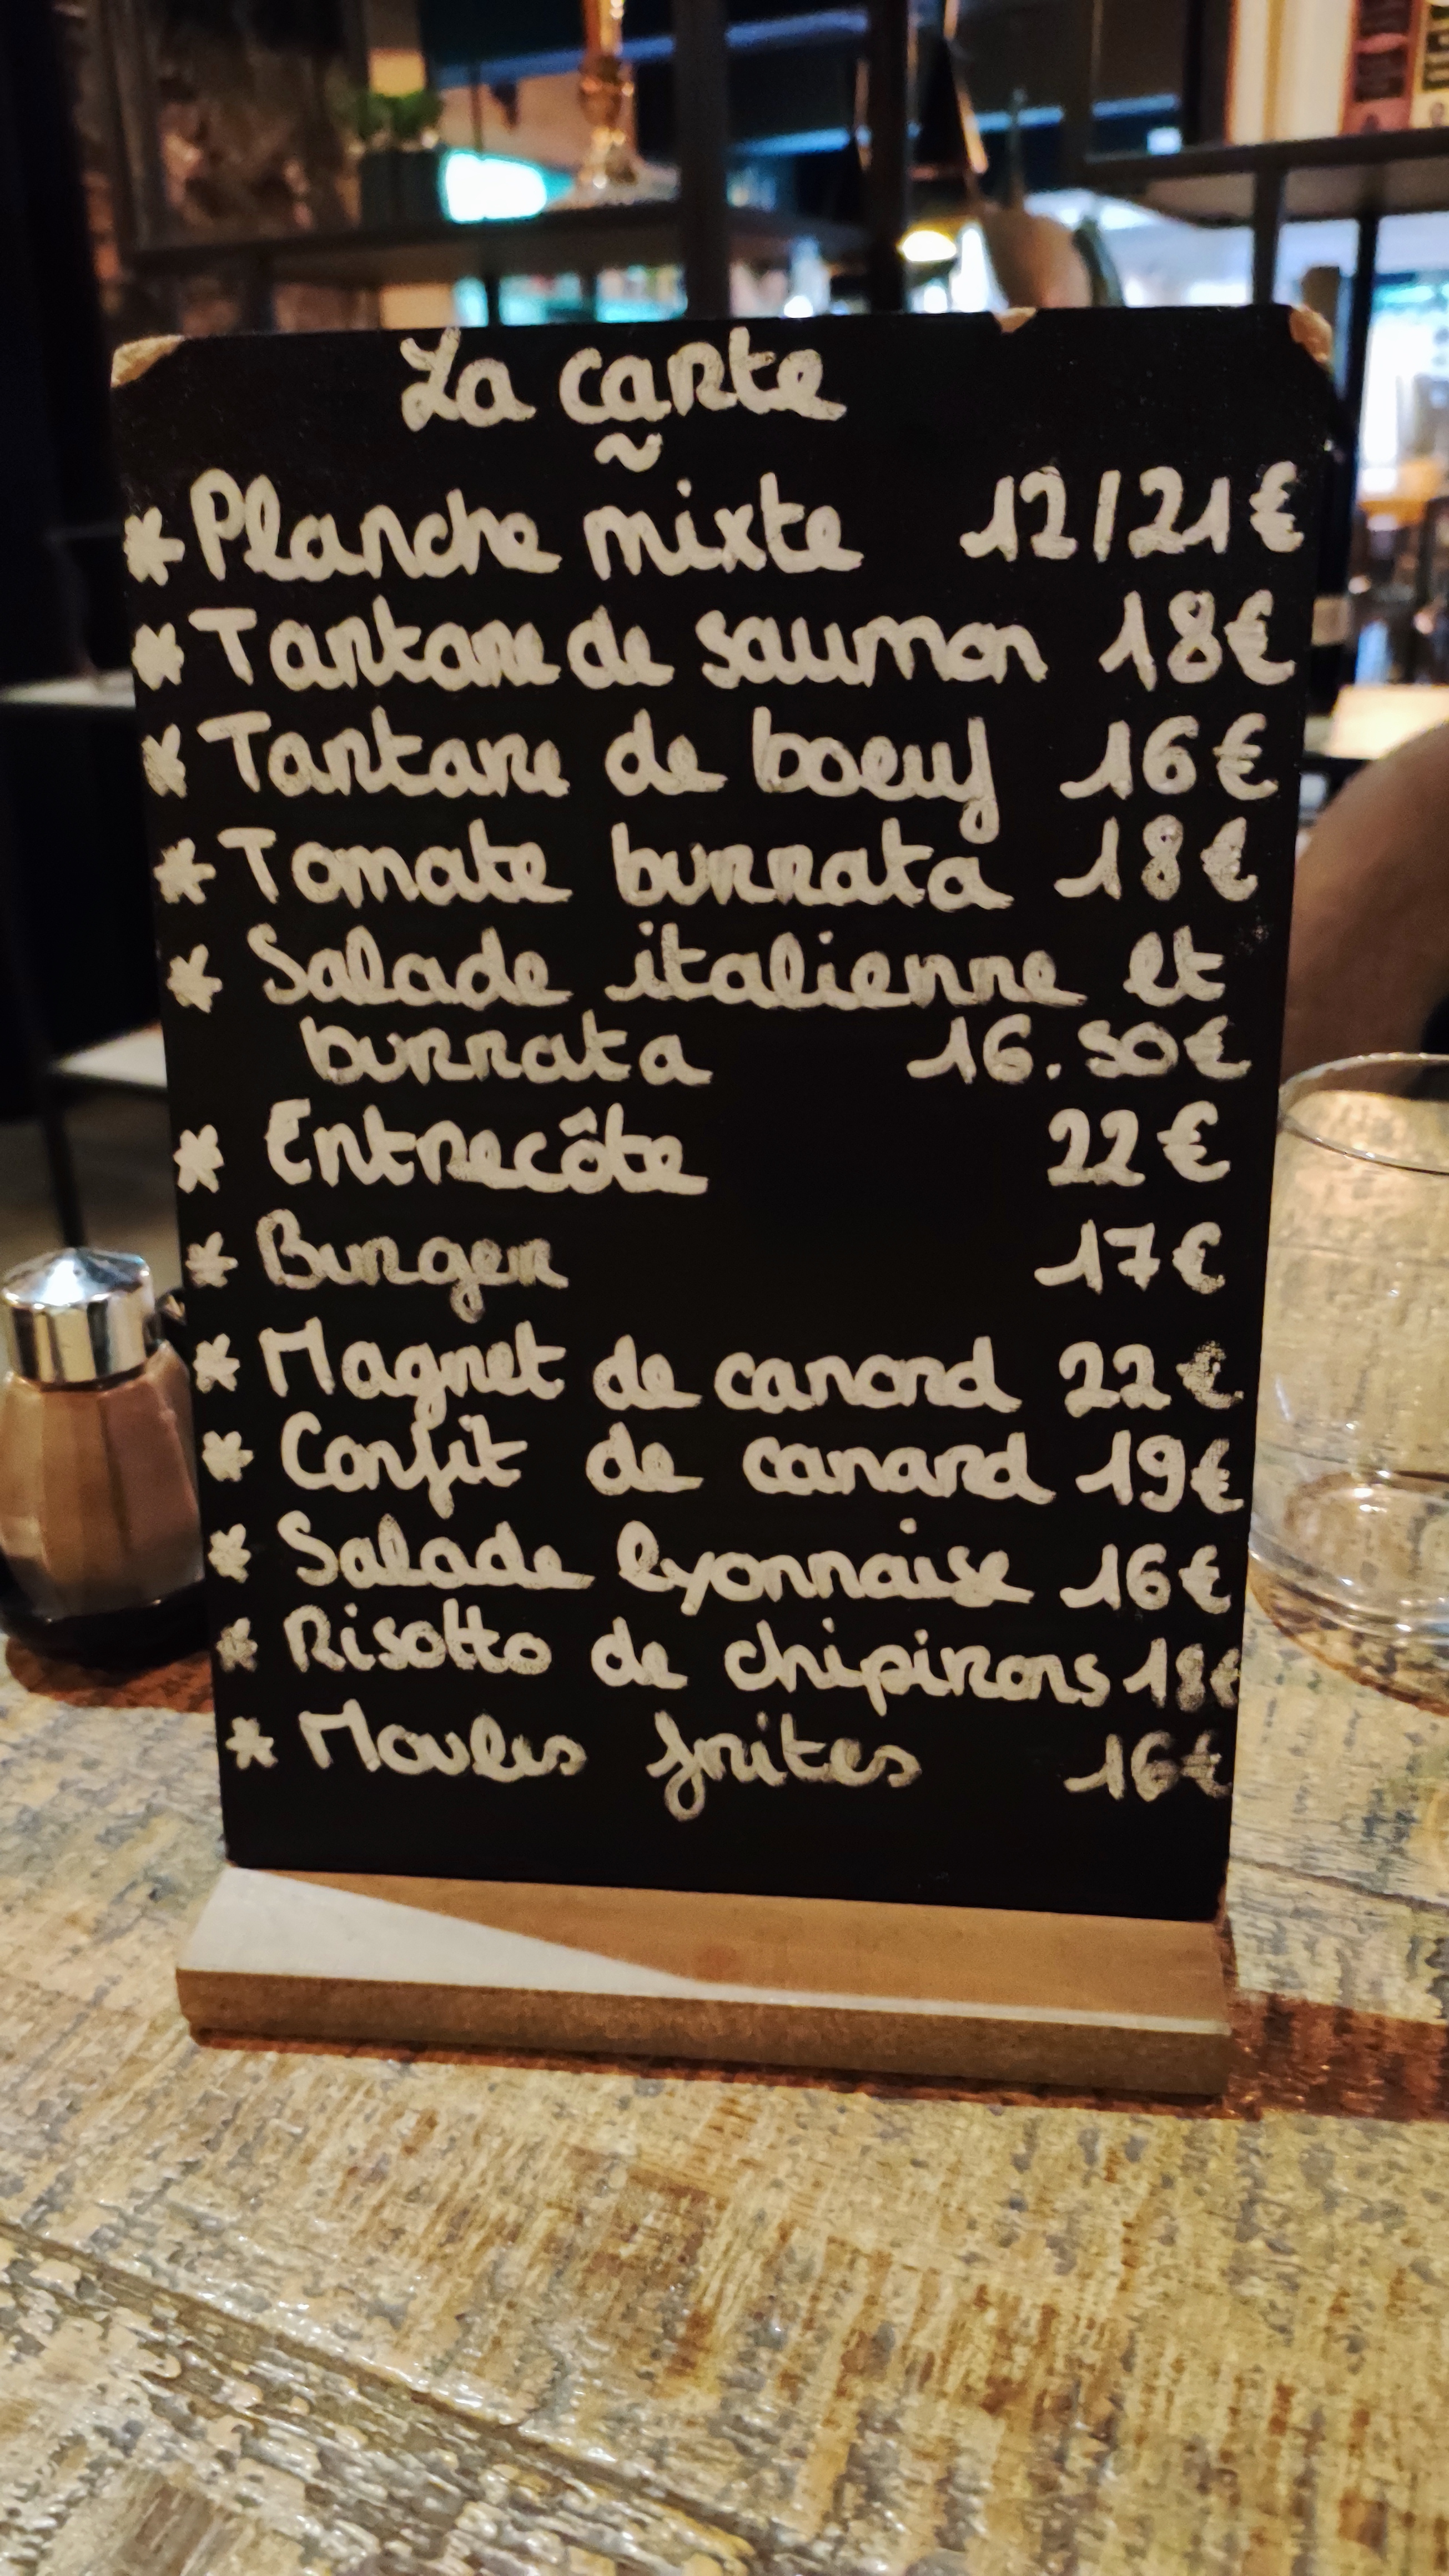 La carte
~
* Planche mixte 12/21€
* Tartare de saumon 18€
* Tartare de boeuf 16€
* Tomate burrata 18€
* Salade italienne et
burrata 16.50€
* Entrecôte 22€
* Burger 17€
* Magret de canard 22€
* Confit de canard 19€
* Salade lyonnaise 16€
* Risotto de chipirons 18€
* Moules frites 16€